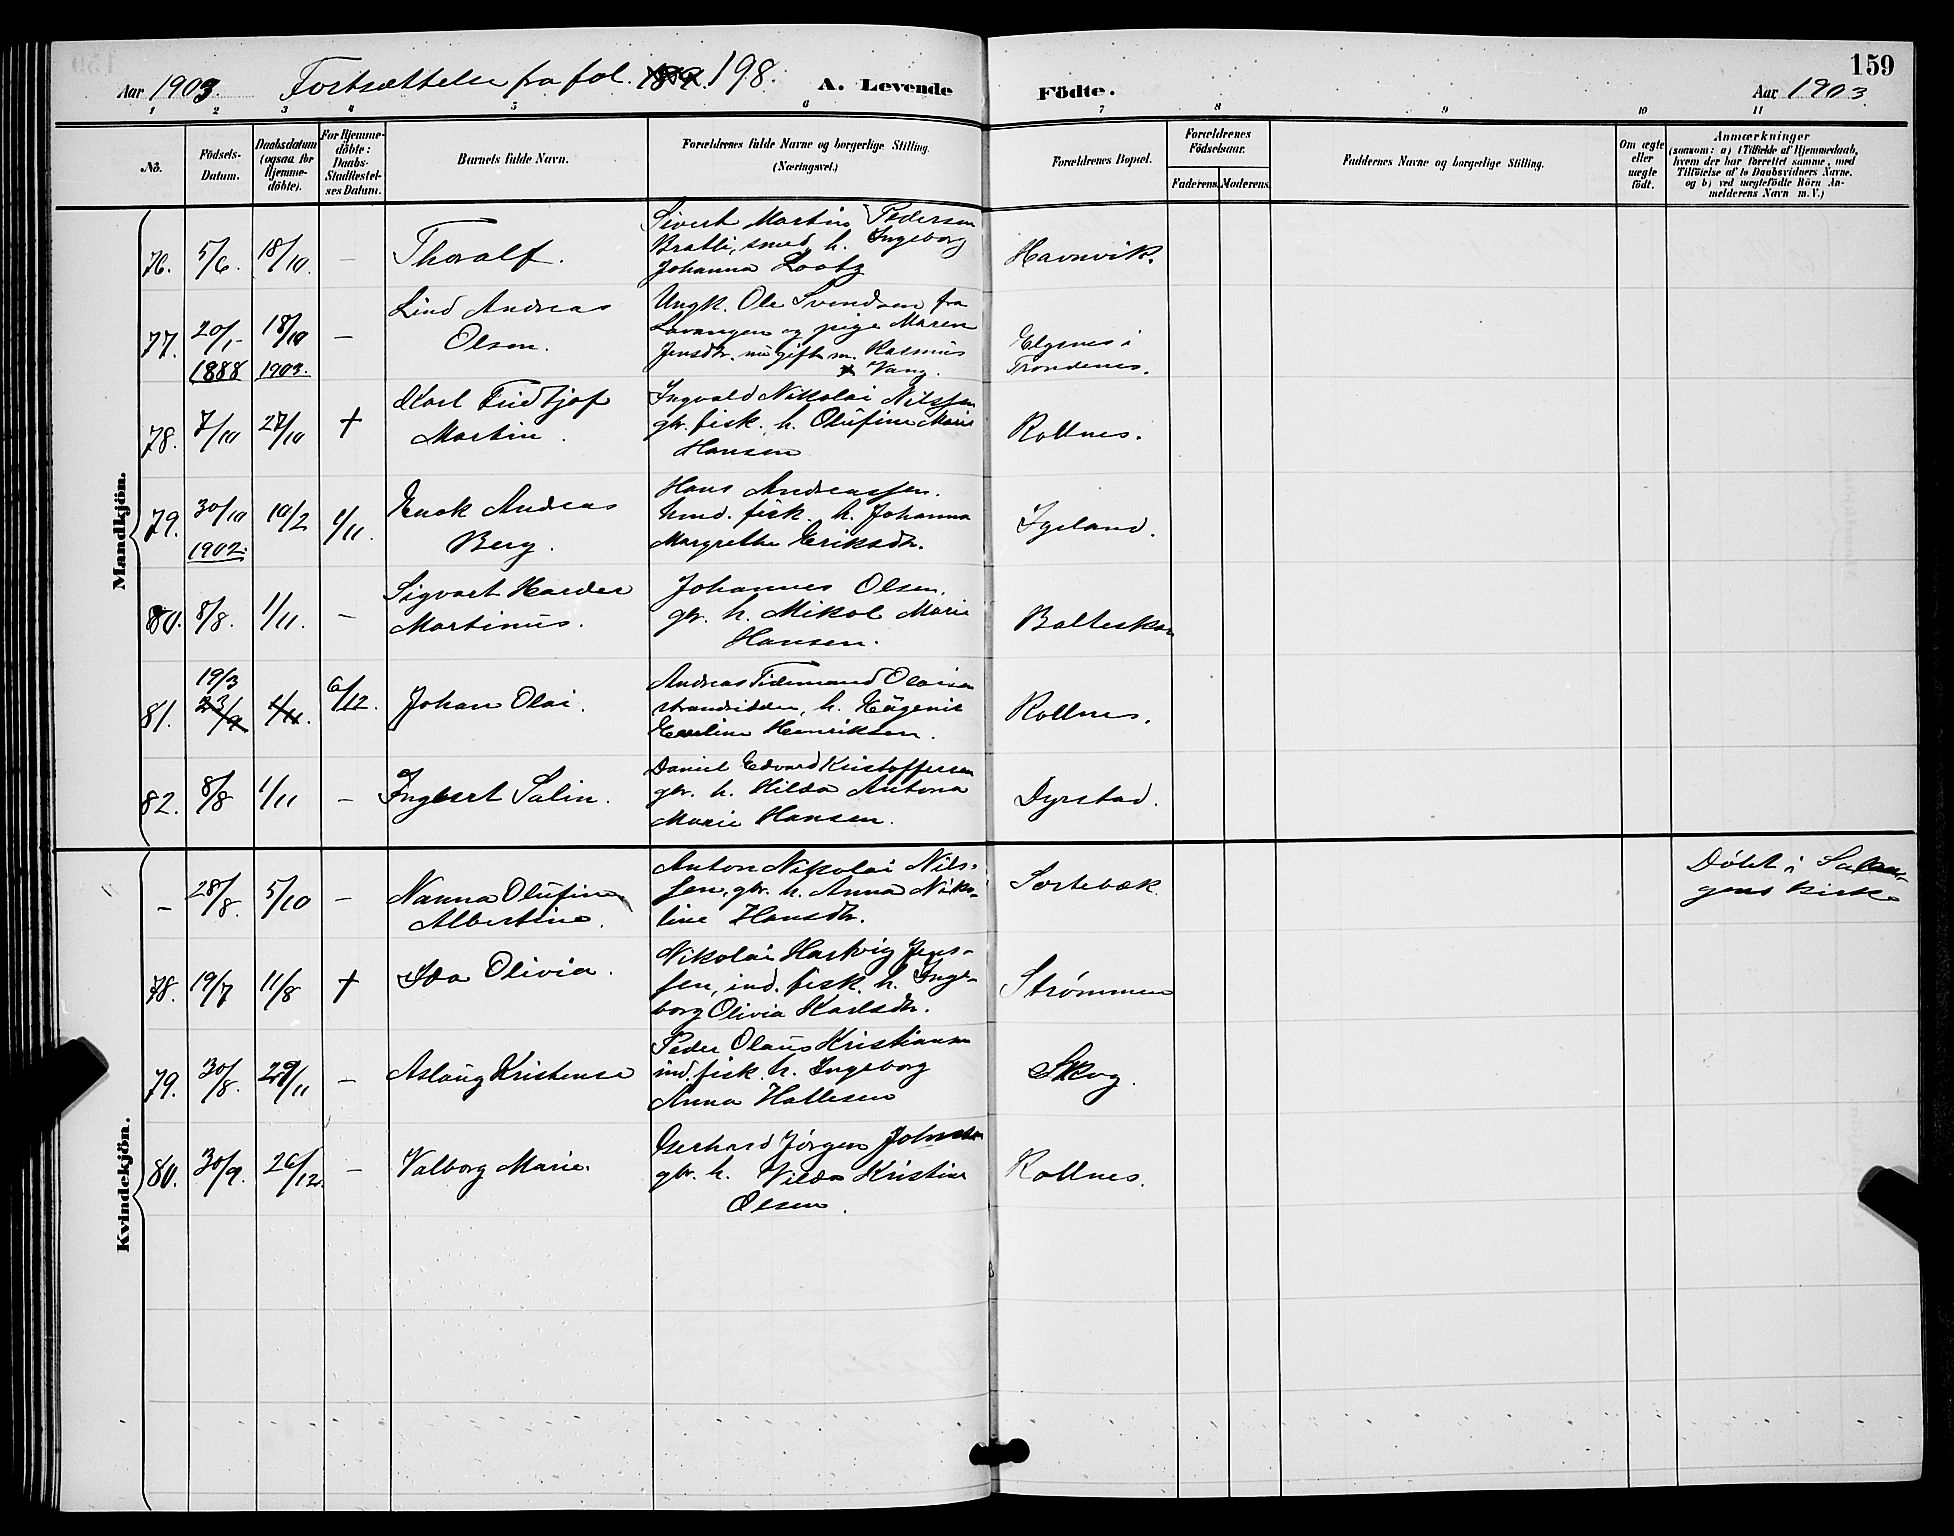 159
Aar 1903. Fortsættelse fra fol. 198. A. Levende Födte. Aar 1903.
1 2 3 4 5 6 7 8 9 10 11
Nö.
Födsels-
Datum.
Daabsdatum
(ogsaa for
Hjemme-
döbte).
For Hjemme-
döbte:
Daabs-
Stadfæstel-
ses Datum.
Barnets fulde Navn.
Forældrenes fulde Navne og borgerlige Stilling.
(Næringsvei.)
Forældrenes Bopæl.
Forældrenes
Födselsaar.
Faderens. Moderens.
Faddernes Navne og borgerlige Stilling.
Om ægte
eller
uægte
födt.
Anmærkninger
(saasom: a) i Tilfælde af Hjemmedaab,
hvem der har forrettet samme, med
Tilföielse af to Daabsvidners Navne,
og b) ved uægtefödte Börn An-
melderens Navn m. V.)
Mandkjön.
76. 5/6. 18/10. – Thoralf.
Sivert Martin Pedersen
Bratli, smed, h. Ingeborg
Johanna Lootz
Havnvik.
77. 20/1- 1888 18/10 1903. –
Lind Andreas
Olsen.
Ungk. Ole Svendsen fra
Lavangen og pige Maren
Jensdtr. nu gift m. Rasmus
Vang.
Elgsnes i
Trondenes.
78. 7/10 27/10 +
Karl Fridtjof
Martin.
Ingvald Nikolai Nilssen
gbr. fisk. h. Olufine Marie
Hansen
Rollnes.
79. 30/10 1902. 10/2 1/11.
Enok Andreas
Berg.
Hans Andreassen.
hmd. fisk. h. Johanna
Margrethe Eriksdtr.
Igeland.
80. 8/8. 1/11. –
Sigvart Harder
Martinus.
Johannes Olsen.
gbr. h. Mikol Marie
Hansen.
Balteskar
81. 19/3 23/9 1/11. 6/12. Johan Olai.
Andreas Tidemand Olaisen
strandsidder, h. Eugenie
Eveline Henriksen.
Rollnes.
82. 8/8 1/11 – Ingbert Salin.
Daniel Edvard Kristoffersen
gbr. h. Hilda Antona
Marie Hansen.
Dyrstad.
Kvindekjön.
– 28/8. 5/10 –
Nanna Olufine
Albertine.
Anton Nikolai Nils-
sen, gbr. h. Anna Niko-
line Hansdtr.
Sortebæk
Døbt i Salan-
gens Kirke
78. 19/7 11/8 + Ida Olivia.
Nikolai Hartvig Jens-
sen, ind. fisk. h. Inge-
borg Olivia Karlsdtr.
Strømmen
79. 30/8. 29/11 – Aslaug Kristense
Peder Olaus Kristiansen
ind. fisk. h. Ingeborg
Anna Hallesen
Skog.
80. 30/9. 26/12. – Valborg Marie.
Gerhard Jørgen Johnsen
gbr. h. Vilda Kristine
Olsen.
Rollnes.